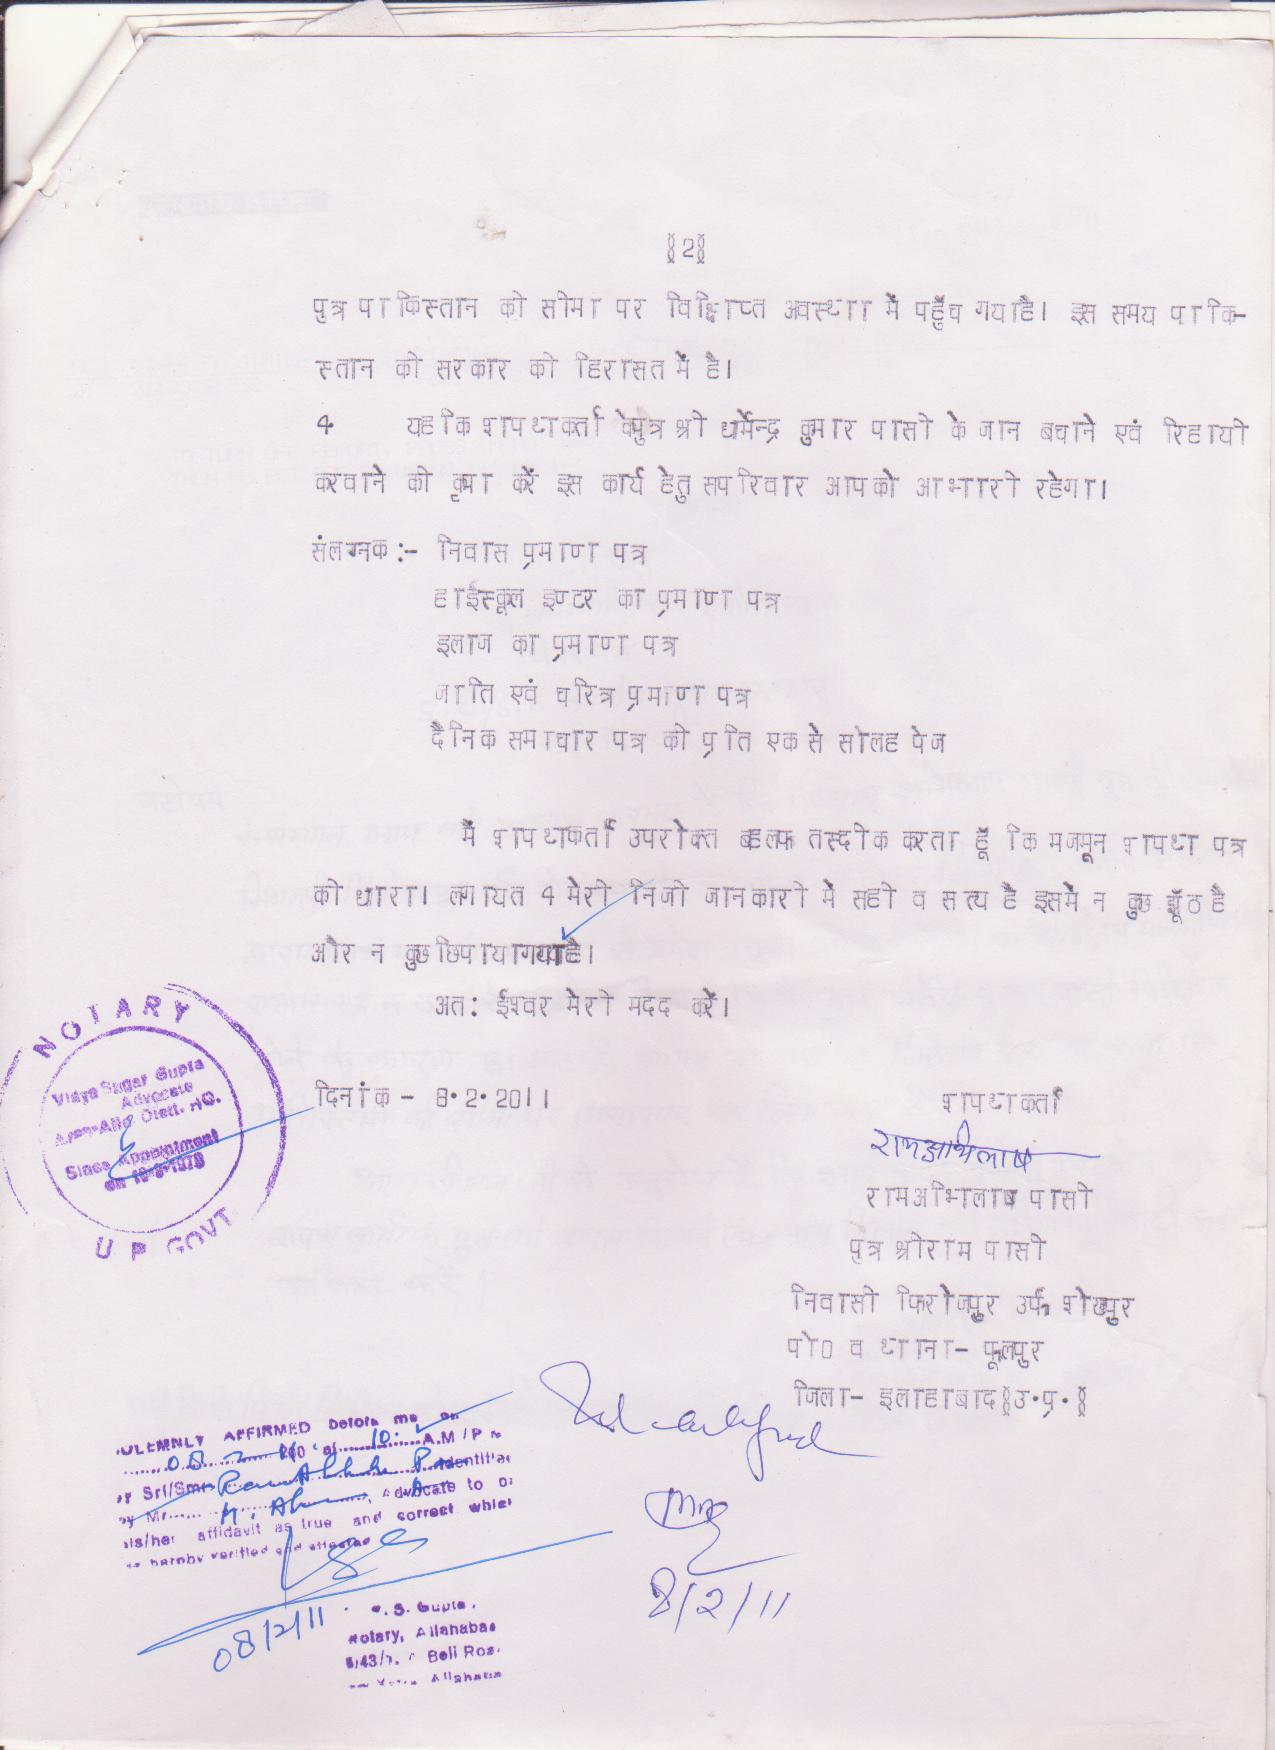 §2§
पुत्र पाकिस्तान की सीमा पर विक्षिप्त अवस्था में पहुँच गयाहै। इस समय पाकि-
स्तान की सरकार की हिरासत में है।
4 यहकि शपथकर्ता केपुत्र श्री धर्मेन्द्र कुमार पासी के जान बचाने एवं रिहायी
करवाने की कृपा करें इस कार्य हेतु सपरिवार आपको आभारी रहेगा।
संलग्नक :- निवास प्रमाण पत्र
हाईस्कूल इण्टर का प्रमाण पत्र
इलाज का प्रमाण पत्र
जाति एवं चरित्र प्रमाण पत्र
दैनिक समाचार पत्र की प्रति एक से सोलह पेज
मैं शपथकर्ता उपरोक्त बहलफ तस्दीक करता हूँ कि मजमून शपथ पत्र
की धारा। लगायत 4 मेरी निजी जानकारी में सही व सत्य है इसमें न कुछ झूँठ है
और न कुछ छिपाया गयाहै।
अत: ईश्वर मेरी मदद करें।
दिनांक - 8·2·2011
शपथकर्ता
रामअभिलाष
रामअभिलाष पासी
पुत्र श्रीराम पासी
निवासी फिरोजपुर उर्फ शेखपुर
पो0 व थाना- फूलपुर
जिला- इलाहाबाद§उ·प्र·§
NOTARY
Vidya Sagar Gupta
Advocate
Area-Alld. Distt. HQ.
Since Appointment
U P GOVT
SOLEMNLY AFFIRMED before me on
08 2 at 10 A.M / P
by Sri/Smt identified
by Mr Advocate to
his/her affidavit as true and correct which
hereby verified and attested
08/2/11
V. S. Gupta
Notary, Allahabad
Beli Road
Allahabad
8/2/11